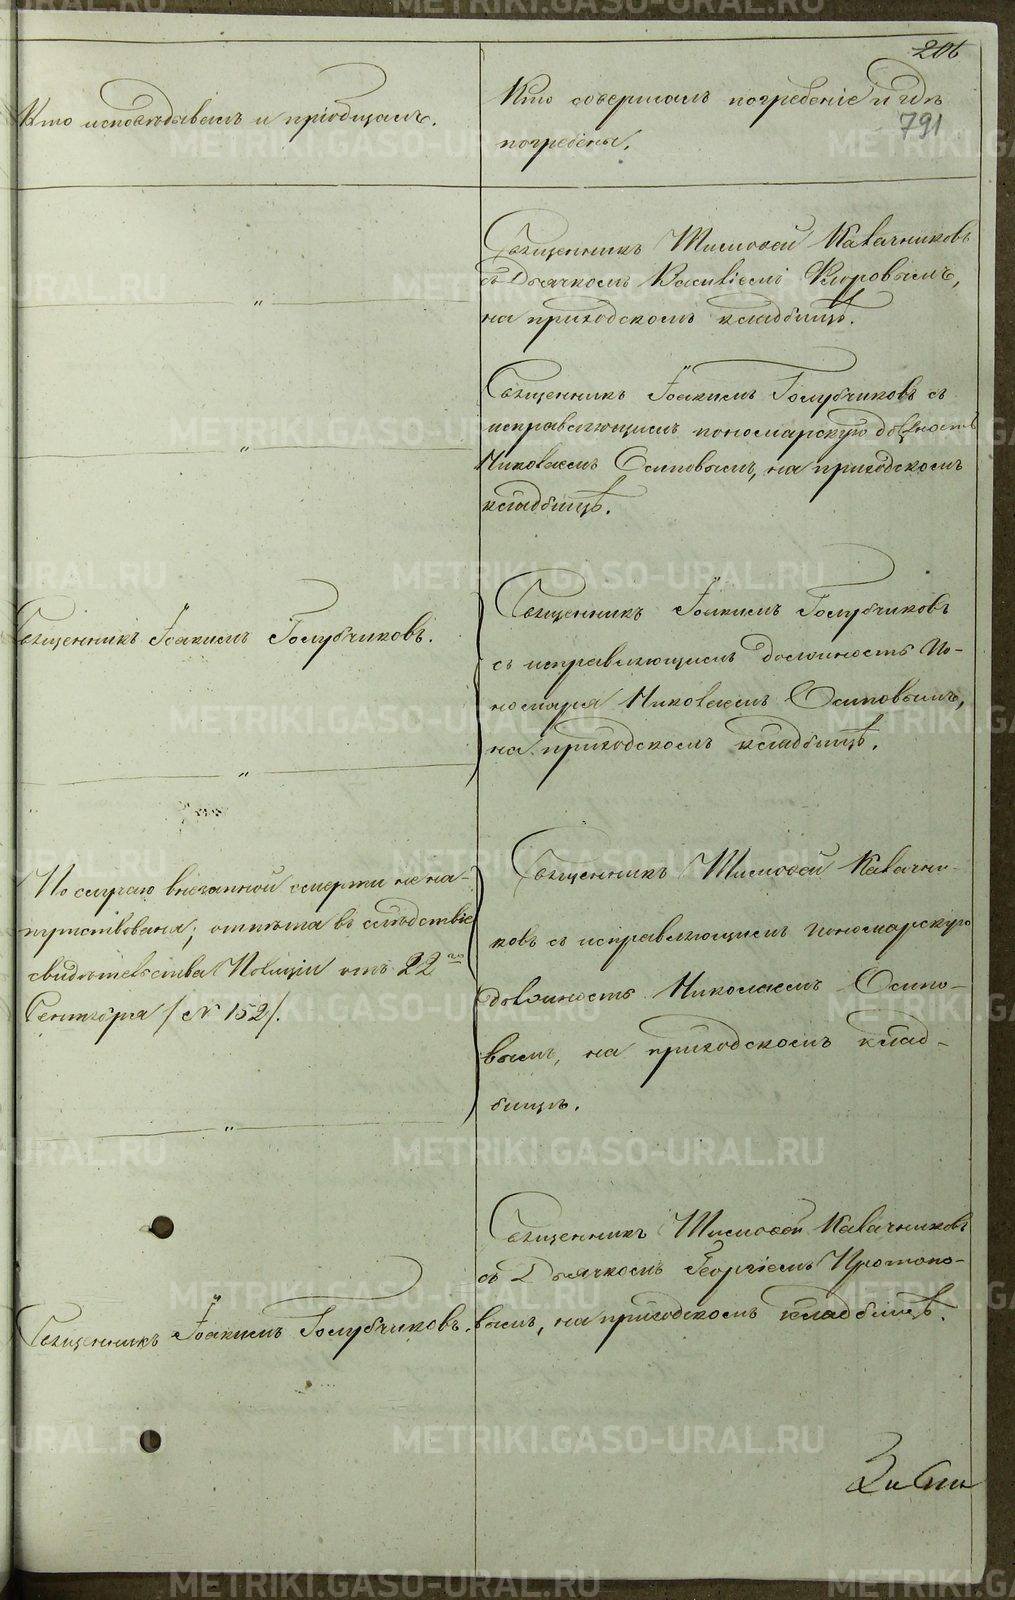 206
791
Кто исповѣдывалъ и пріобщалъ.
Кто совершалъ погребеніе и гдѣ
погребены.
Священникъ Тимофей Калачниковъ
съ Дьячкомъ Василіемъ
на приходскомъ кладбищѣ.
"
Священникъ Іоакимъ Голубчиковъ съ
исправляющимъ пономарскую должность
Николаемъ Осиповымъ, на приходскомъ
кладбищѣ.
"
Священникъ Іоакимъ Голубчиковъ.
"
Священникъ Іоакимъ Голубчиковъ
съ исправляющимъ должность По-
номаря Николаемъ Осиповымъ,
на приходскомъ кладбищѣ.
По случаю внезапной смерти не на-
путствована; отпѣта въ слѣдствіе
свидѣтельства Полиціи отъ 22го
Сентября /№ 152/.
"
Священникъ Тимофей Калачни-
ковъ съ исправляющимъ пономарскую
должность Николаемъ Осипо-
вымъ, на приходскомъ клад-
бищѣ.
Священникъ Іоакимъ Голубчиковъ.
Священникъ Тимофей Калачниковъ
съ Дьячкомъ Георгіемъ Протопо-
вымъ, на приходскомъ кладбищѣ.
METRIKI.GASO-URAL.RU